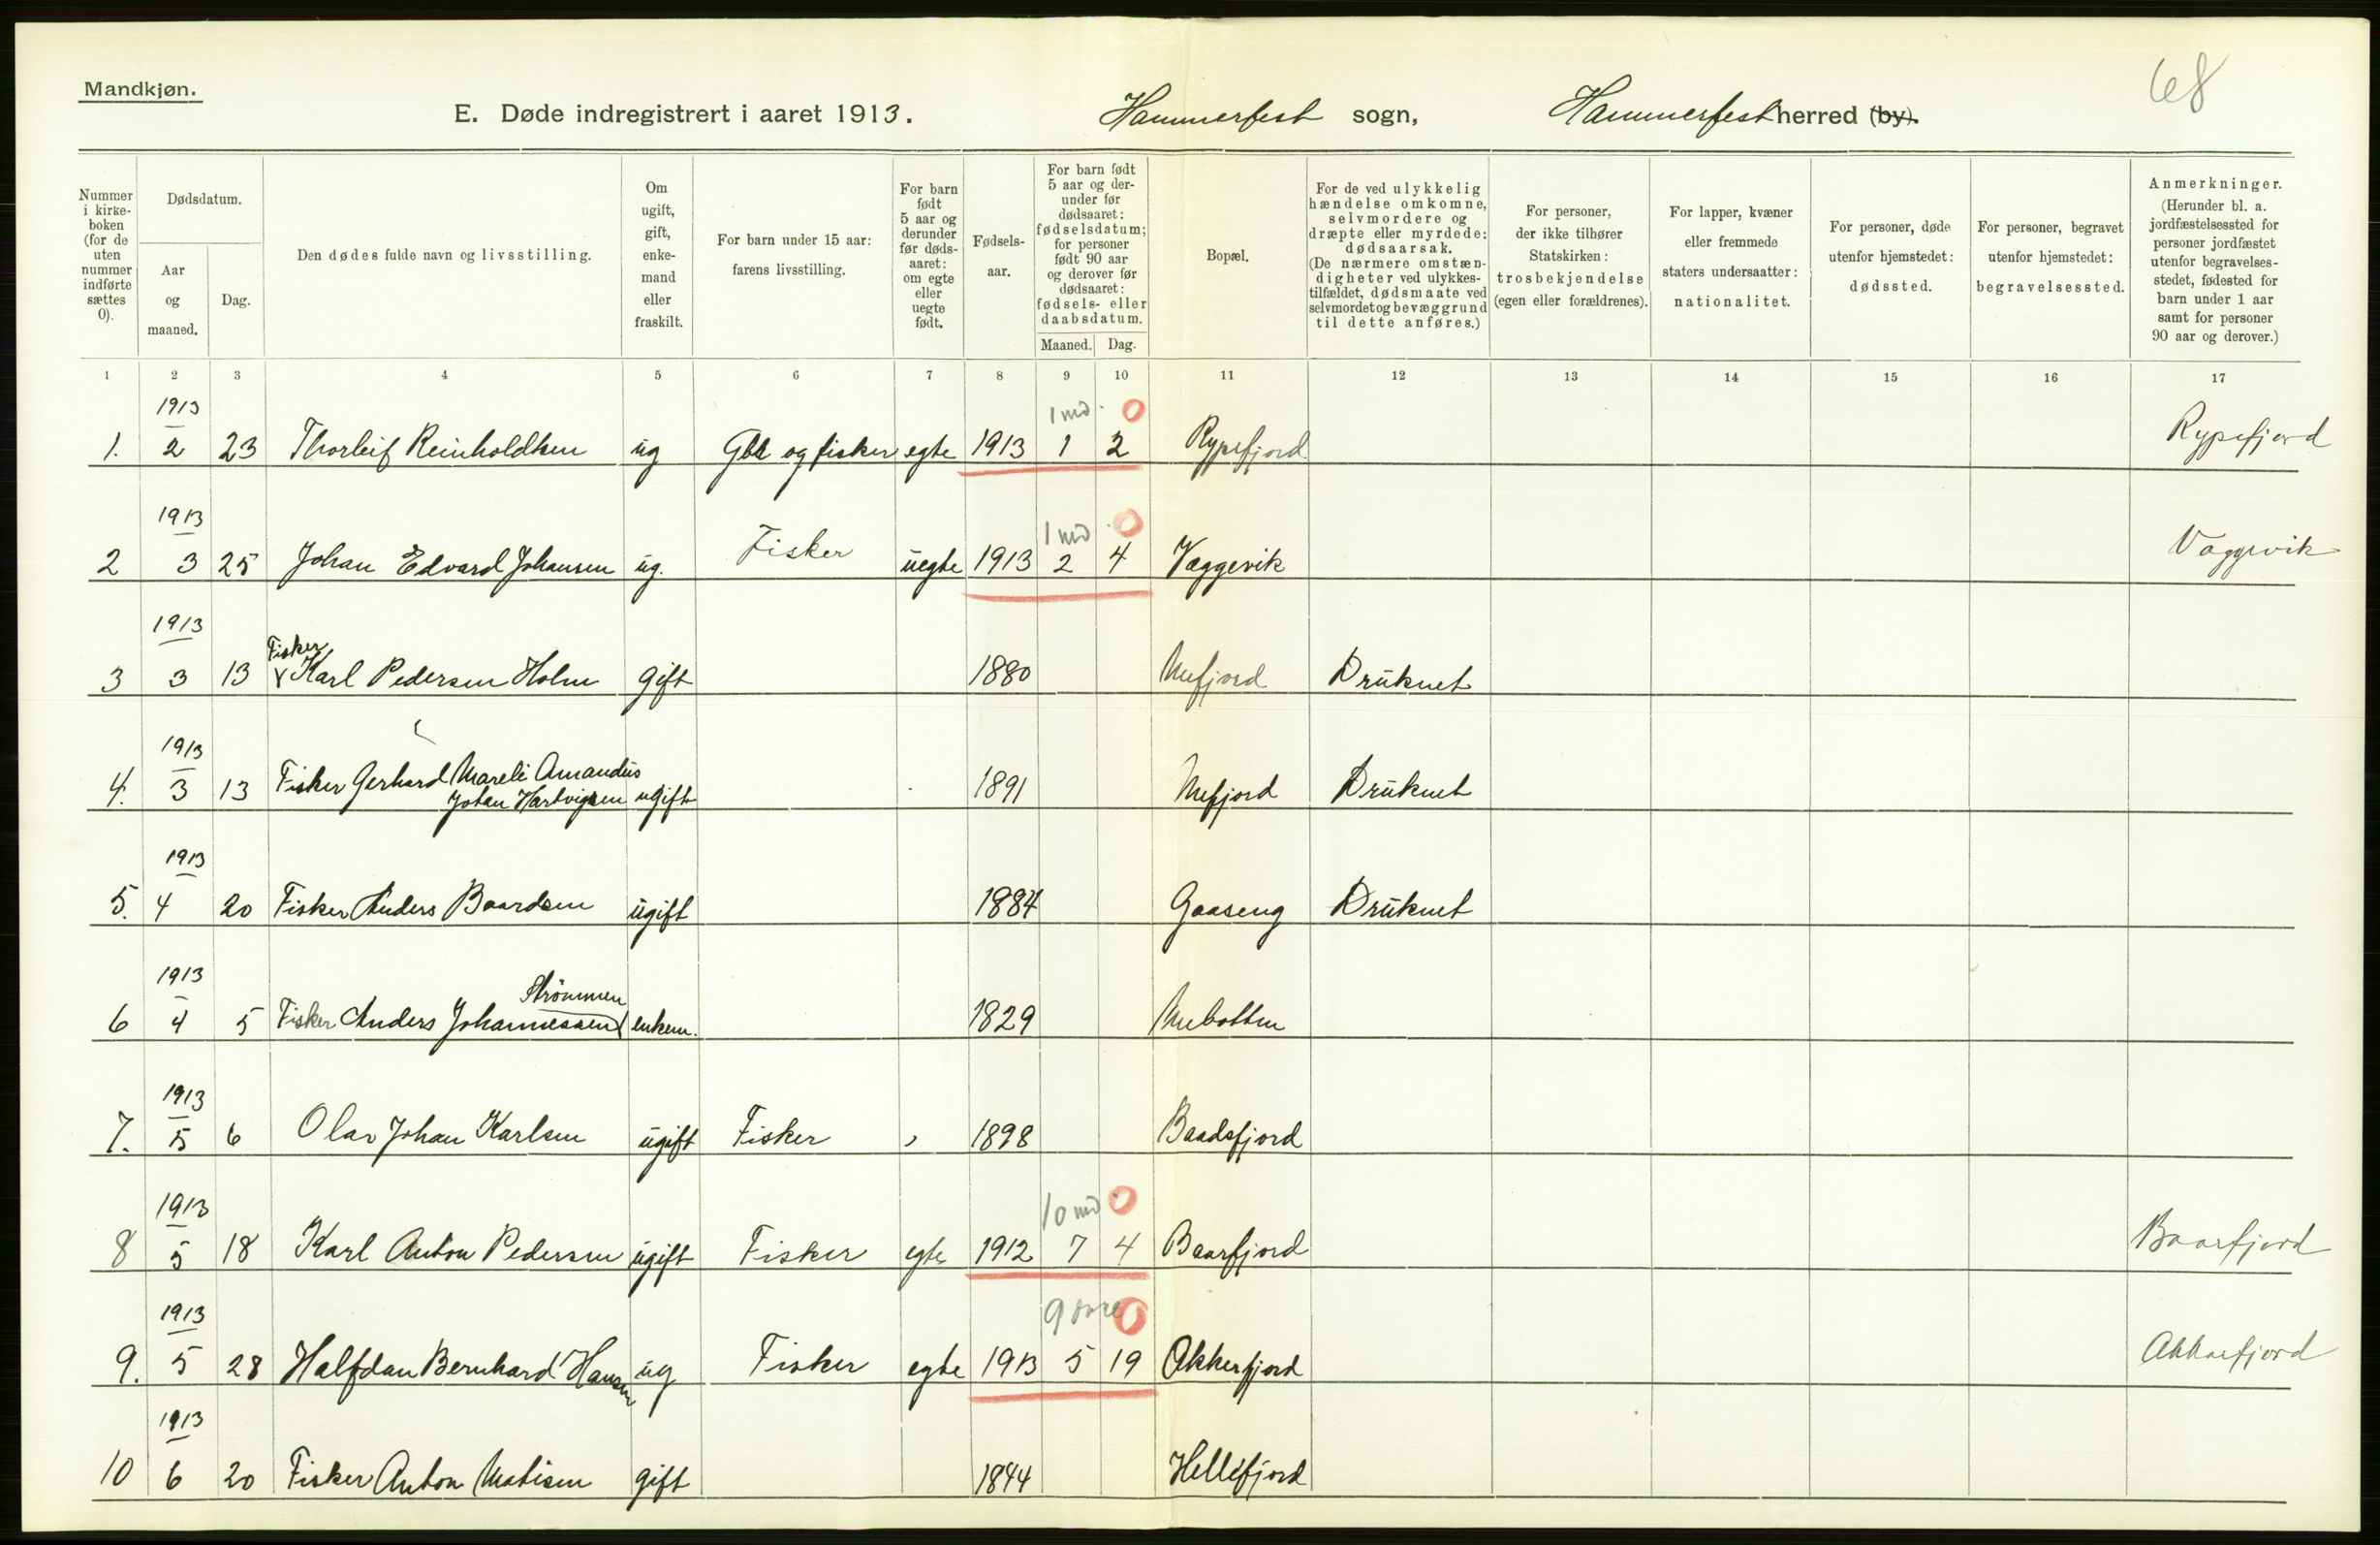 Mandkjøn.
68
E. Døde indregistrert i aaret 1913. Hammerfest sogn, Hammerfest herred (by).
Nummer i kirke-boken (for de uten nummer indførte sættes 0).
Dødsdatum.
Aar og maaned.
Dag.
Den dødes fulde navn og livsstilling.
Om ugift, gift, enke-mand eller fraskilt.
For barn under 15 aar: farens livsstilling.
For barn født 5 aar og derunder før døds-aaret: om egte eller uegte født.
Fødsels-aar.
For barn født 5 aar og der-under før dødsaaret: fødselsdatum; for personer født 90 aar og derover før dødsaaret: fødsels- eller daabsdatum.
Maaned. Dag.
Bopæl.
For de ved ulykkelig hændelse omkomne, selvmordere og dræpte eller myrdede: dødsaarsak. (De nærmere omstæn-digheter ved ulykkes-tilfældet, dødsmaate ved selvmordet og bevæggrund til dette anføres.)
For personer, der ikke tilhører Statskirken: trosbekjendelse (egen eller forældrenes).
For lapper, kvæner eller fremmede staters undersaatter: nationalitet.
For personer, døde utenfor hjemstedet: dødssted.
For personer, begravet utenfor hjemstedet: begravelsessted.
Anmerkninger. (Herunder bl. a. jordfæstelsessted for personer jordfæstet utenfor begravelses-stedet, fødested for barn under 1 aar samt for personer 90 aar og derover.)
1 2 3 4 5 6 7 8 9 10 11 12 13 14 15 16 17
1913 1 md. 0
1. 2 23 Thorleif Reinholdtsen ug Gbr og fisker egte 1913 1 2 Rypefjord Rypefjord
1913 1 md 0
2 3 25 Johan Edvard Johansen ug. Fisker uegte 1913 2 4 Vaggevik Vaggevik
1913
Fisker
3 3 13 Karl Pedersen Holm gift 1880 Mefjord Druknet
1913
4. 3 13 Fisker Gerhard Mareli Amandus
Johan Hartvigsen ugift 1891 Mefjord Druknet
1913
5. 4 20 Fisker Anders Baardsen ugift 1884 Gaaseng Druknet
1913 Strömmen
6 4 5 Fisker Anders Johannessen enkem. 1829 Mebotten
1913
7. 5 6 Olav Johan Karlsen ugift Fisker , 1898 Baadsfjord
1913 10 md 0
8 5 18 Karl Anton Pedersen ugift Fisker egte 1912 7 4 Baarfjord Baarfjord
1913 9 0
9. 5 28 Halfdan Bernhard Hansen ug Fisker egte 1913 5 19 Akkerfjord Akkarfjord
1913
10 6 20 Fisker Anton Matisen gift 1844 Hellefjord